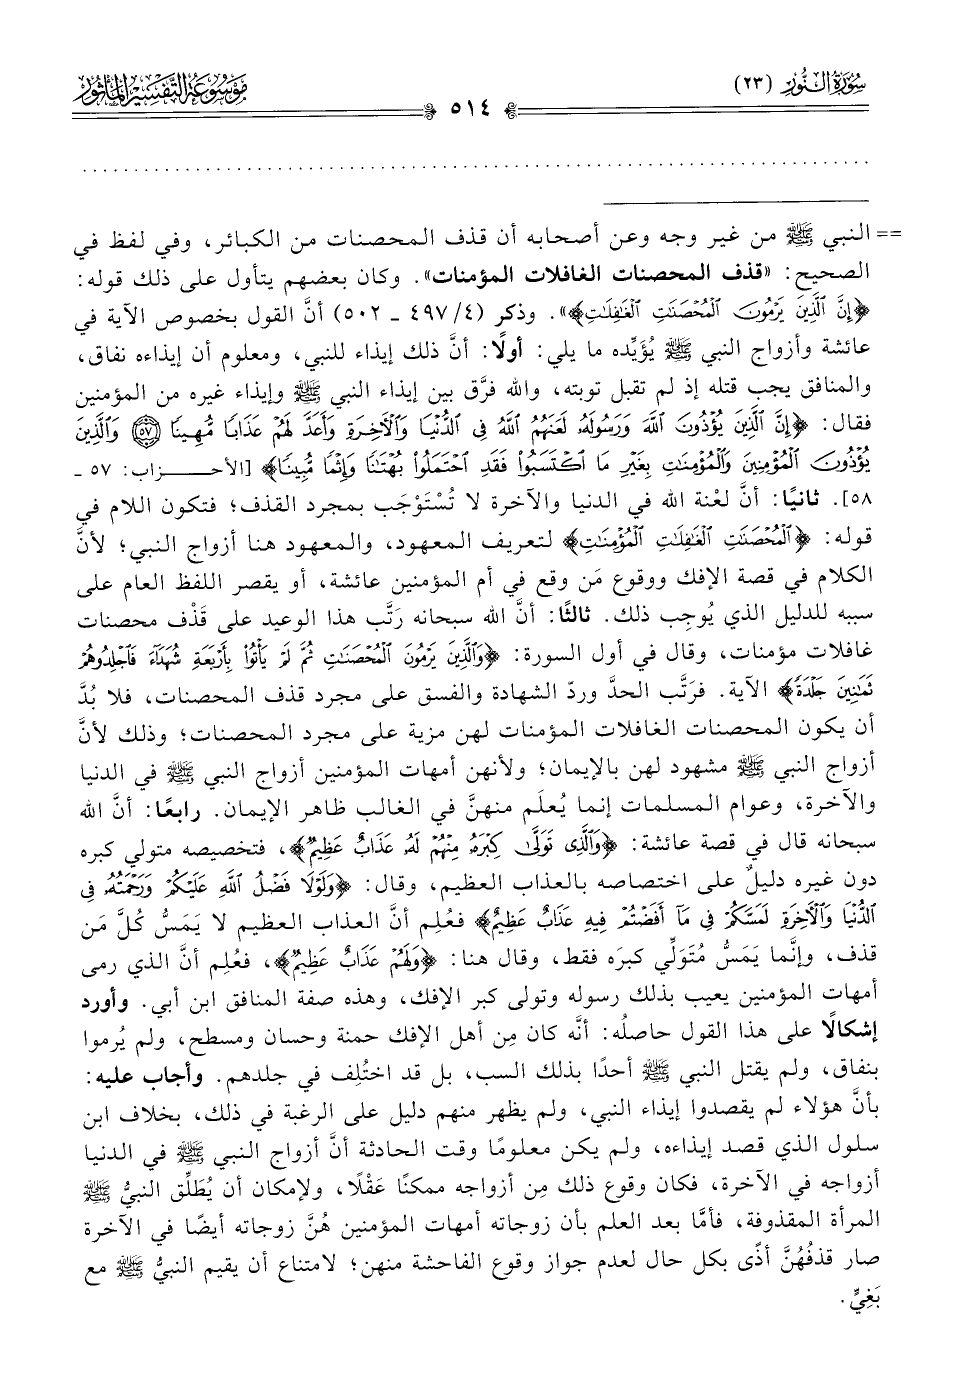 سُورَةُ النُّورِ (٢٣)
مَوْسُوعَةُ التَّفْسِيرِ المَأْثُورِ
٥١٤
== النبي ﷺ من غير وجه وعن أصحابه أن قذف المحصنات من الكبائر، وفي لفظ في
الصحيح: «قذف المحصنات الغافلات المؤمنات». وكان بعضهم يتأول على ذلك قوله:
﴿إِنَّ الَّذِينَ يَرْمُونَ الْمُحْصَنَاتِ الْغَافِلَاتِ﴾». وذكر (٤/ ٤٩٧ ـ ٥٠٢) أنَّ القول بخصوص الآية في
عائشة وأزواج النبي ﷺ يُؤَيِّده ما يلي: أولًا: أنَّ ذلك إيذاء للنبي، ومعلوم أن إيذاءه نفاق،
والمنافق يجب قتله إذ لم تقبل توبته، والله فرَّق بين إيذاء النبي ﷺ وإيذاء غيره من المؤمنين
فقال: ﴿إِنَّ الَّذِينَ يُؤْذُونَ اللَّهَ وَرَسُولَهُ لَعَنَهُمُ اللَّهُ فِي الدُّنْيَا وَالْآخِرَةِ وَأَعَدَّ لَهُمْ عَذَابًا مُّهِينًا ٥٧ وَالَّذِينَ
يُؤْذُونَ الْمُؤْمِنِينَ وَالْمُؤْمِنَاتِ بِغَيْرِ مَا اكْتَسَبُوا فَقَدِ احْتَمَلُوا بُهْتَانًا وَإِثْمًا مُّبِينًا﴾ [الأحزاب: ٥٧ ـ
٥٨]. ثانيًا: أنَّ لعْنة الله في الدنيا والآخرة لا تُسْتَوْجَب بمجرد القذف؛ فتكون اللام في
قوله: ﴿الْمُحْصَنَاتِ الْغَافِلَاتِ الْمُؤْمِنَاتِ﴾ لتعريف المعهود، والمعهود هنا أزواج النبي؛ لأنَّ
الكلام في قصة الإفك ووقوع مَن وقع في أم المؤمنين عائشة، أو يقصر اللفظ العام على
سببه للدليل الذي يُوجِب ذلك. ثالثًا: أنَّ الله سبحانه رَتَّب هذا الوعيد على قَذْف محصنات
غافلات مؤمنات، وقال في أول السورة: ﴿وَالَّذِينَ يَرْمُونَ الْمُحْصَنَاتِ ثُمَّ لَمْ يَأْتُوا بِأَرْبَعَةِ شُهَدَاءَ فَاجْلِدُوهُمْ
ثَمَانِينَ جَلْدَةً﴾ الآية. فرَتَّب الحدَّ وردّ الشهادة والفسق على مجرد قذف المحصنات، فلا بُدَّ
أن يكون المحصنات الغافلات المؤمنات لهن مزية على مجرد المحصنات؛ وذلك لأنَّ
أزواج النبي ﷺ مشهود لهن بالإيمان؛ ولأنهن أمهات المؤمنين أزواج النبي ﷺ في الدنيا
والآخرة، وعوام المسلمات إنما يُعلَم منهنَّ في الغالب ظاهر الإيمان. رابعًا: أنَّ الله
سبحانه قال في قصة عائشة: ﴿وَالَّذِي تَوَلَّى كِبْرَهُ مِنْهُمْ لَهُ عَذَابٌ عَظِيمٌ﴾، فتخصيصه متولي كبره
دون غيره دليلٌ على اختصاصه بالعذاب العظيم، وقال: ﴿وَلَوْلَا فَضْلُ اللَّهِ عَلَيْكُمْ وَرَحْمَتُهُ فِي
الدُّنْيَا وَالْآخِرَةِ لَمَسَّكُمْ فِي مَا أَفَضْتُمْ فِيهِ عَذَابٌ عَظِيمٌ﴾ فعُلِم أنَّ العذاب العظيم لا يَمَسُّ كُلَّ مَن
قذف، وإنَّما يَمَسُّ مُتَوَلِّي كبرَه فقط، وقال هنا: ﴿وَلَهُمْ عَذَابٌ عَظِيمٌ﴾، فعُلِم أنَّ الذي رمى
أمهات المؤمنين يعيب بذلك رسوله وتولى كبر الإفك، وهذه صفة المنافق ابن أبي. وأورد
إشكالًا على هذا القول حاصلُه: أنَّه كان مِن أهل الإفك حمنة وحسان ومسطح، ولم يُرموا
بنفاق، ولم يقتل النبي ﷺ أحدًا بذلك السب، بل قد اختُلِف في جلدهم. وأجاب عليه:
بأنَّ هؤلاء لم يقصدوا إيذاء النبي، ولم يظهر منهم دليل على الرغبة في ذلك، بخلاف ابن
سلول الذي قصد إيذاءه، ولم يكن معلومًا وقت الحادثة أنَّ أزواج النبي ﷺ في الدنيا
أزواجه في الآخرة، فكان وقوع ذلك مِن أزواجه ممكنًا عَقْلًا، ولإمكان أن يُطَلِّق النبيُّ ﷺ
المرأة المقذوفة، فأمَّا بعد العلم بأن زوجاته أمهات المؤمنين هُنَّ زوجاته أيضًا في الآخرة
صار قذفُهُنَّ أذًى بكل حال لعدم جواز وقوع الفاحشة منهن؛ لامتناع أن يقيم النبيُّ ﷺ مع
بَغِيٍّ.